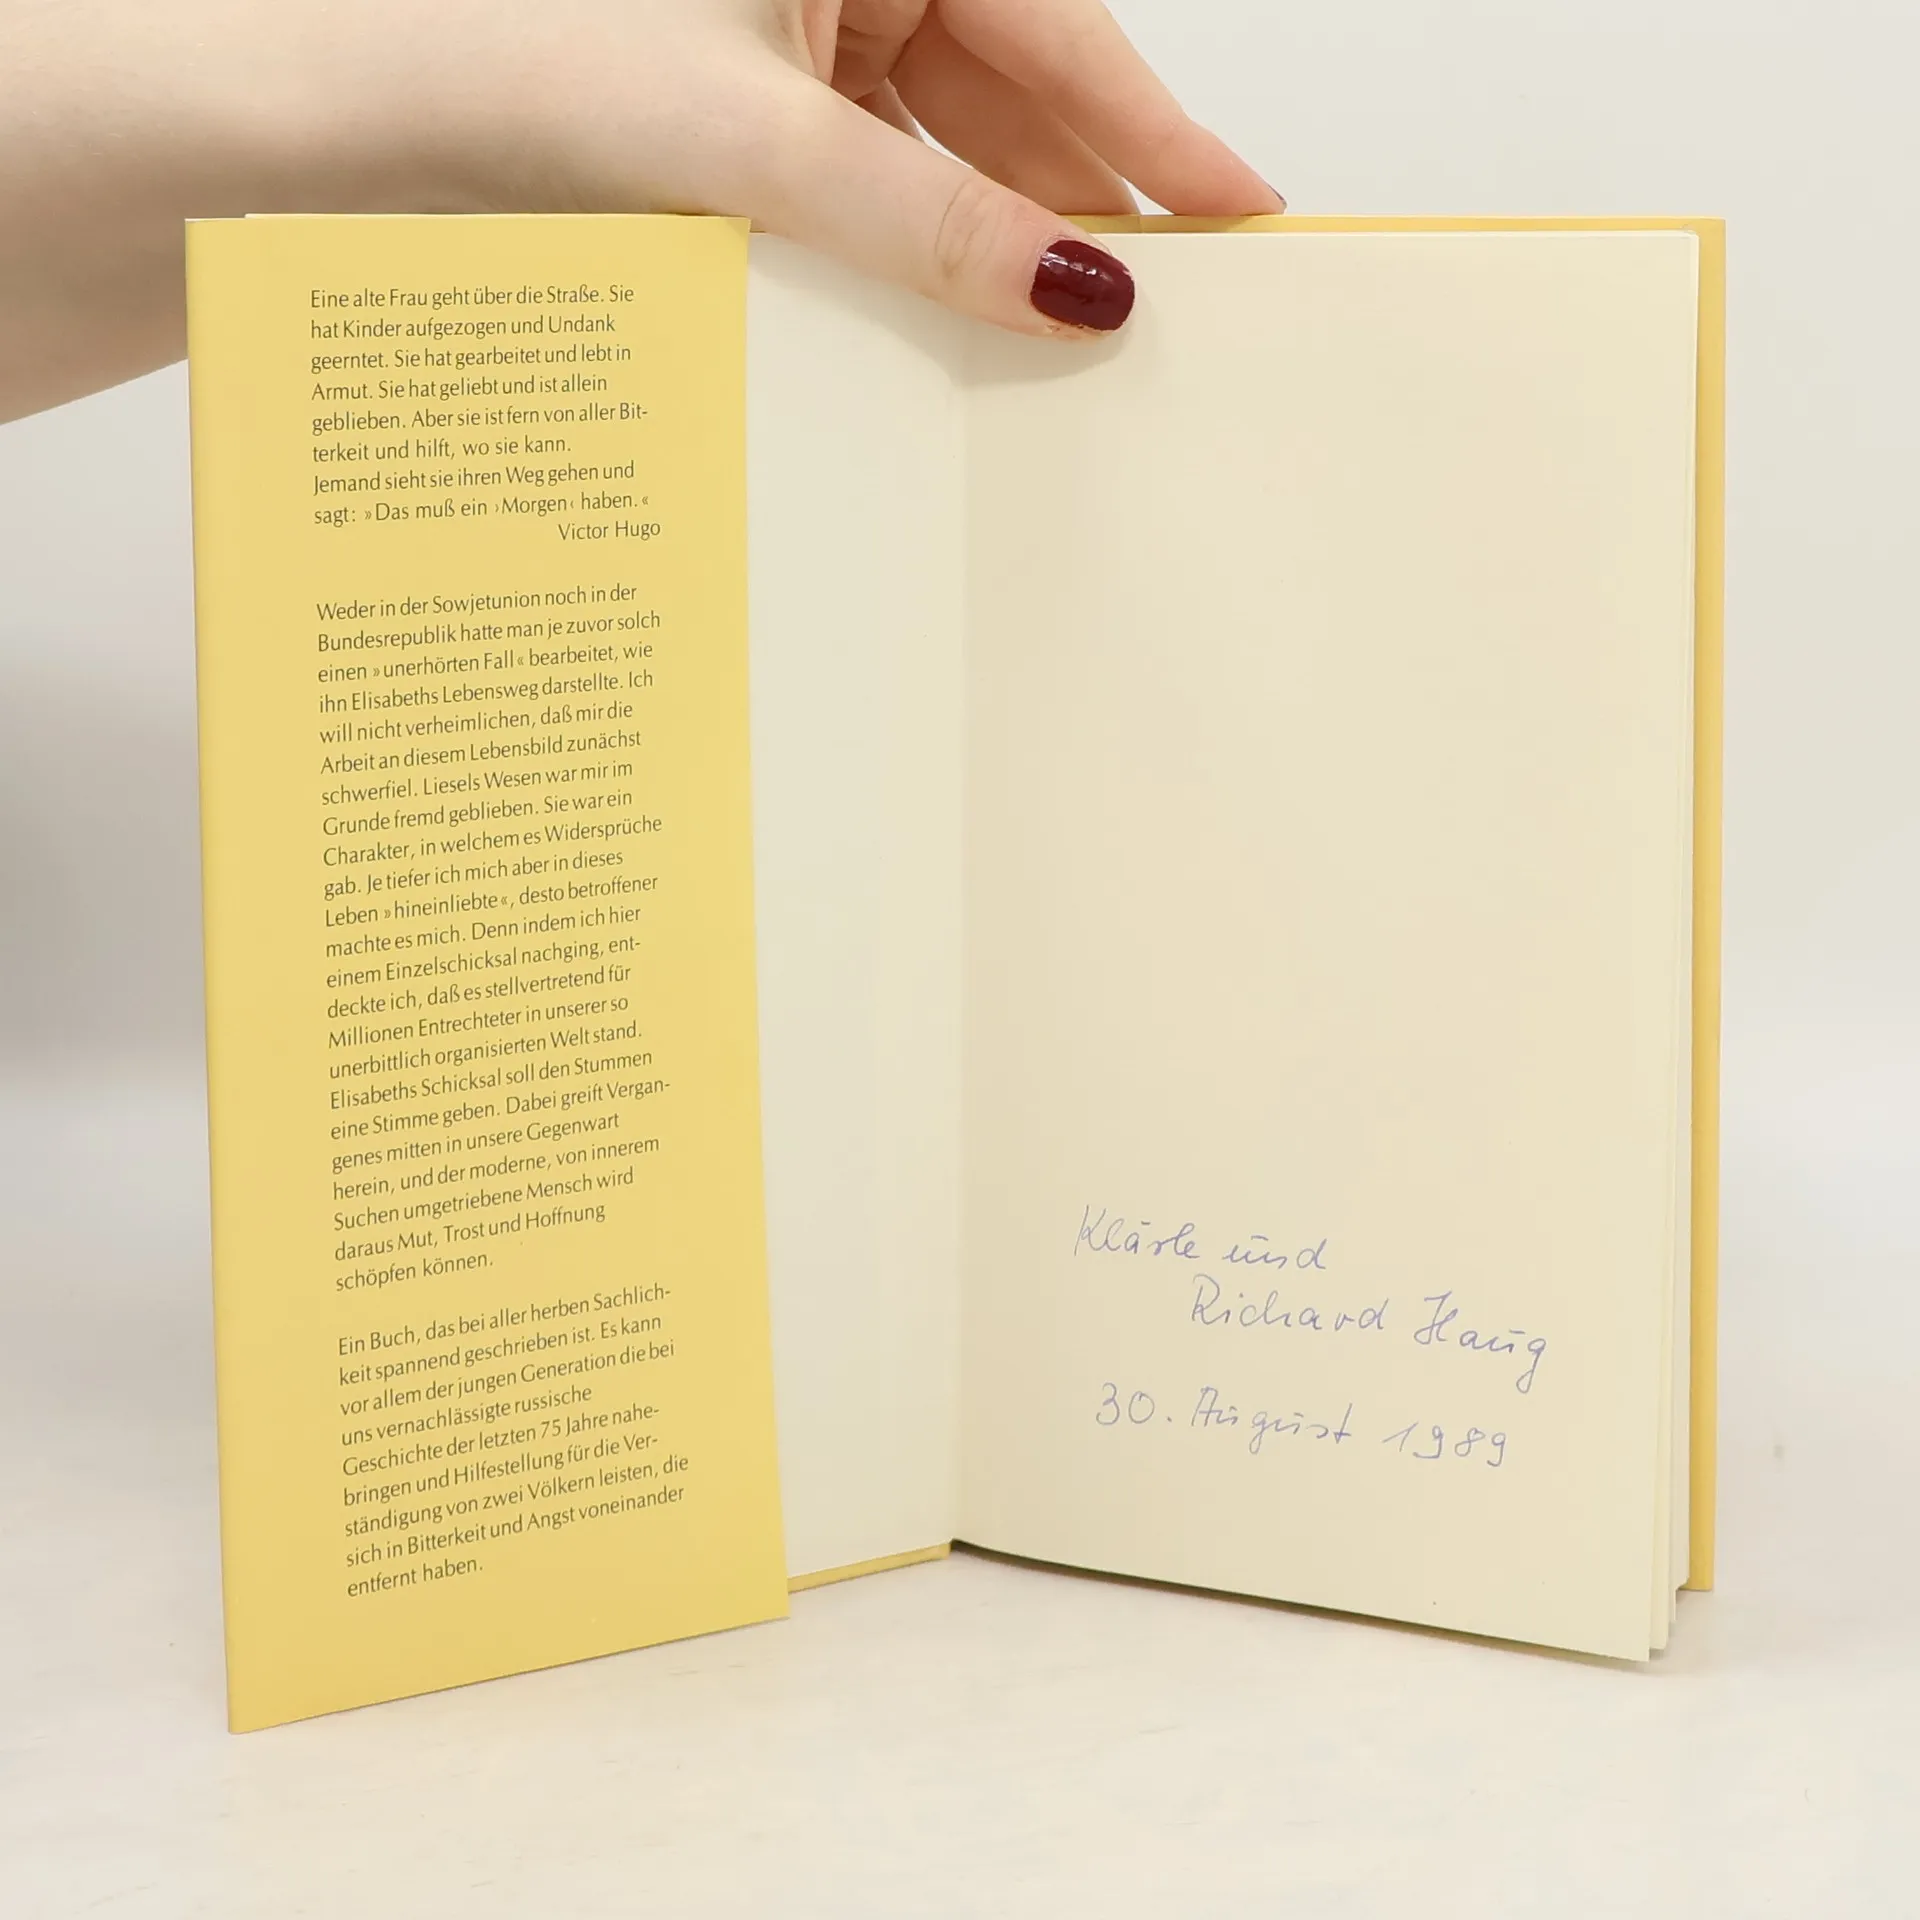 Eine alte Frau geht über die Straße. Sie
hat Kinder aufgezogen und Undank
geerntet. Sie hat gearbeitet und lebt in
Armut. Sie hat geliebt und ist allein
geblieben. Aber sie ist fern von aller Bit-
terkeit und hilft, wo sie kann.
Jemand sieht sie ihren Weg gehen und
sagt: »Das muß ein ›Morgen‹ haben.«
Victor Hugo
Weder in der Sowjetunion noch in der
Bundesrepublik hatte man je zuvor solch
einen »unerhörten Fall« bearbeitet, wie
ihn Elisabeths Lebensweg darstellte. Ich
will nicht verheimlichen, daß mir die
Arbeit an diesem Lebensbild zunächst
schwerfiel. Liesels Wesen war mir im
Grunde fremd geblieben. Sie war ein
Charakter, in welchem es Widersprüche
gab. Je tiefer ich mich aber in dieses
Leben »hineinliebte«, desto betroffener
machte es mich. Denn indem ich hier
einem Einzelschicksal nachging, ent-
deckte ich, daß es stellvertretend für
Millionen Entrechteter in unserer so
unerbittlich organisierten Welt stand.
Elisabeths Schicksal soll den Stummen
eine Stimme geben. Dabei greift Vergan-
genes mitten in unsere Gegenwart
herein, und der moderne, von innerem
Suchen umgetriebene Mensch wird
daraus Mut, Trost und Hoffnung
schöpfen können.
Ein Buch, das bei aller herben Sachlich-
keit spannend geschrieben ist. Es kann
vor allem der jungen Generation die bei
uns vernachlässigte russische
Geschichte der letzten 75 Jahre nahe-
bringen und Hilfestellung für die Ver-
ständigung von zwei Völkern leisten, die
sich in Bitterkeit und Angst voneinander
entfernt haben.
Klärle und
Richard Haug
30. August 1989